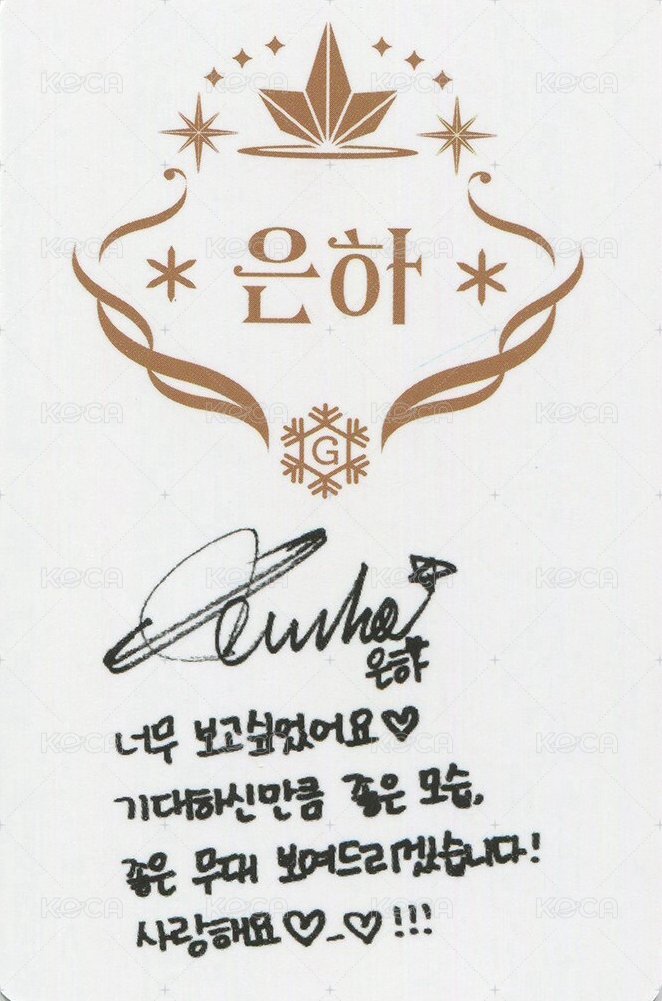 은하
G
Eunha
은하
너무 보고싶었어요♡
기대하신만큼 좋은 모습,
좋은 무대 보여드리겠습니다!
사랑해요♡_♡!!!
KOCA